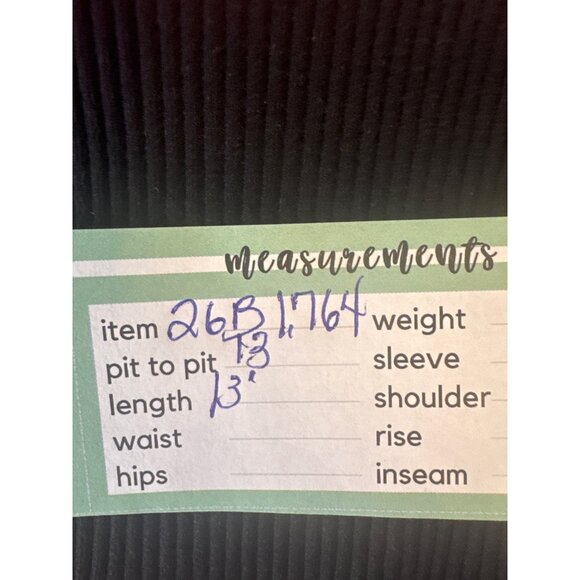 measurements
item 26B 1,764 weight
pit to pit 13 sleeve
length 13" shoulder
waist rise
hips inseam